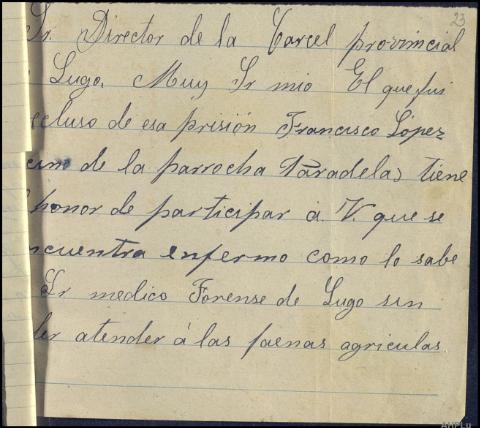 23
Sr. Director de la Carcel provincial
Lugo. Muy Sr mio El que fui
ecluso de esa prisión Francisco López
cino de la parrocha Paradelas tiene
honor de participar á V. que se
ncuentra enfermo como lo sabe
Sr medico Forense de Lugo sin
der atender á las faenas agriculas.
AHPLu